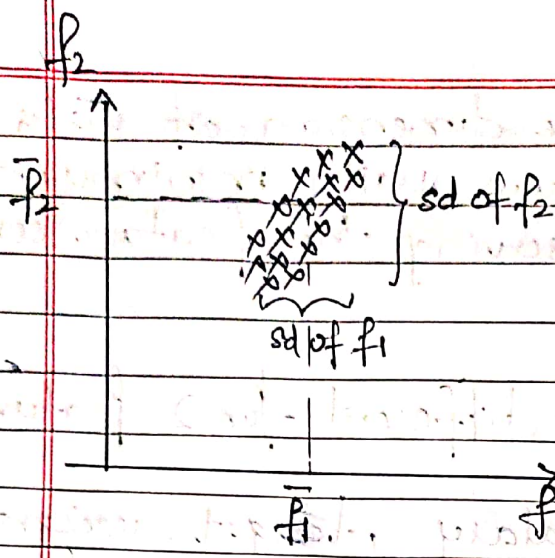 f₂
f̄₂
sd of f₂
sd of f₁
f̄₁
f